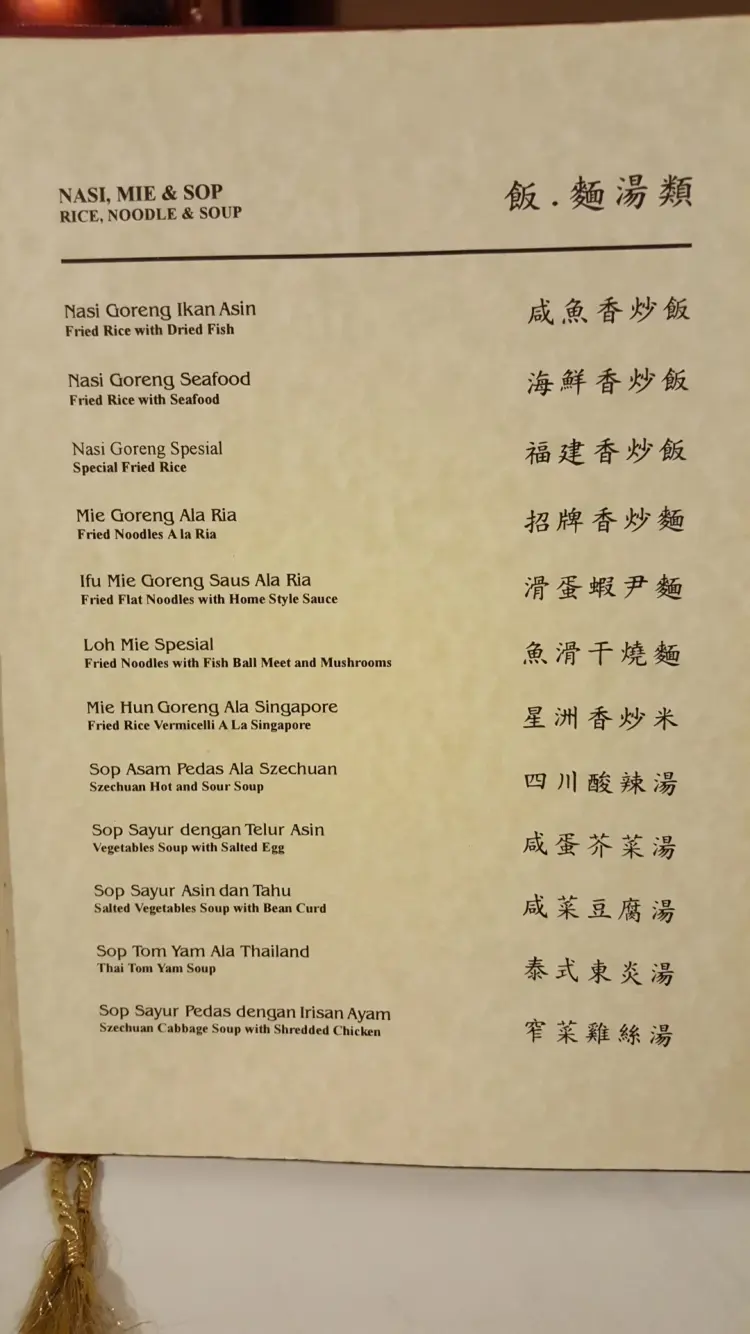 NASI, MIE & SOP
RICE, NOODLE & SOUP
飯.麵湯類
Nasi Goreng Ikan Asin
Fried Rice with Dried Fish
咸魚香炒飯
Nasi Goreng Seafood
Fried Rice with Seafood
海鮮香炒飯
Nasi Goreng Spesial
Special Fried Rice
福建香炒飯
Mie Goreng Ala Ria
Fried Noodles A la Ria
招牌香炒麵
Ifu Mie Goreng Saus Ala Ria
Fried Flat Noodles with Home Style Sauce
滑蛋蝦尹麵
Loh Mie Spesial
Fried Noodles with Fish Ball Meet and Mushrooms
魚滑干燒麵
Mie Hun Goreng Ala Singapore
Fried Rice Vermicelli A La Singapore
星洲香炒米
Sop Asam Pedas Ala Szechuan
Szechuan Hot and Sour Soup
四川酸辣湯
Sop Sayur dengan Telur Asin
Vegetables Soup with Salted Egg
咸蛋芥菜湯
Sop Sayur Asin dan Tahu
Salted Vegetables Soup with Bean Curd
咸菜豆腐湯
Sop Tom Yam Ala Thailand
Thai Tom Yam Soup
泰式東炎湯
Sop Sayur Pedas dengan Irisan Ayam
Szechuan Cabbage Soup with Shredded Chicken
窄菜雞絲湯